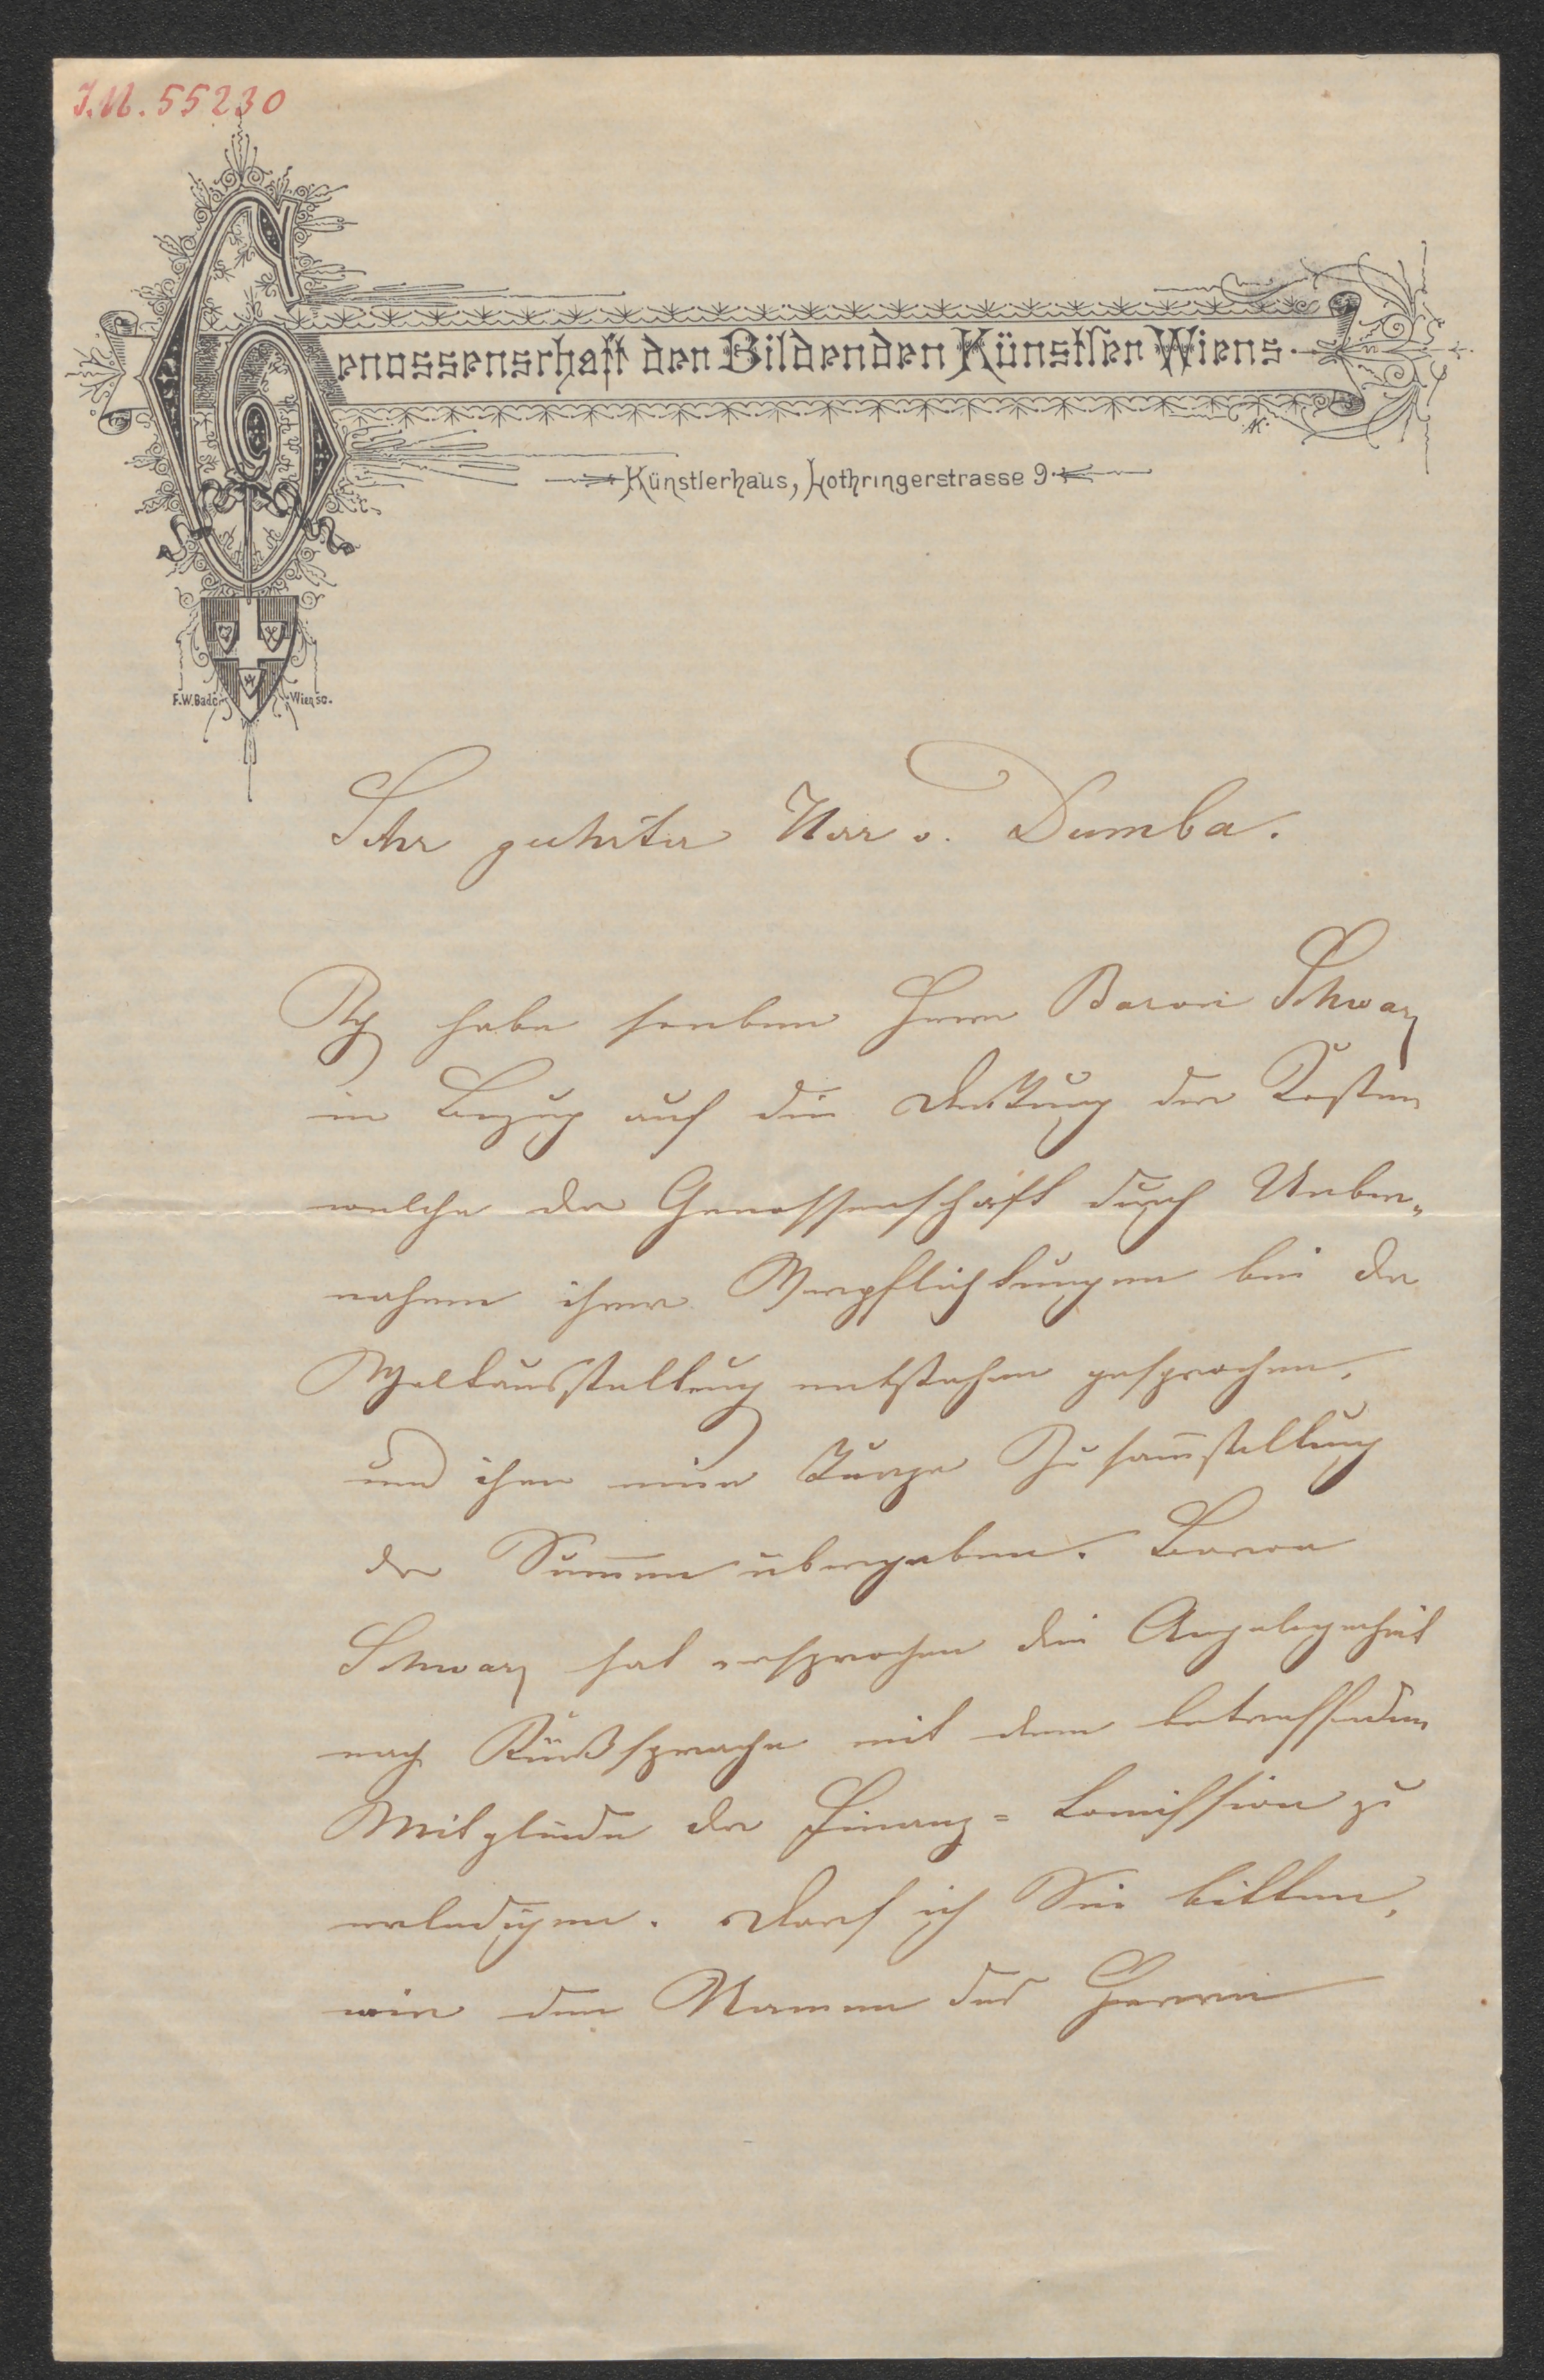 J.N. 55230
Genossenschaft der Bildenden Künstler Wiens
Künstlerhaus, Lothringerstrasse 9.
F.W. Bader Wien sc.
Sehr geehrter Herr v. Dumba.
Ich habe soeben Herrn Baron Schwarz
in Bezug auf die Deckung der Kosten
welche der Genossenschaft durch Ueber„
nahme ihrer Verpflichtungen bei der
Weltausstellung entstehen gesprochen,
und ihm eine kurze Zusam̅stellung
der Sum̅en übergeben. Baron
Schwarz hat versprochen die Angelegenheit
nach Rücksprache mit dem betreffenden
Mitgliede der Finanz-Comission zu
erledigen. Darf ich Sie bitten,
mir den Namen des Herrn